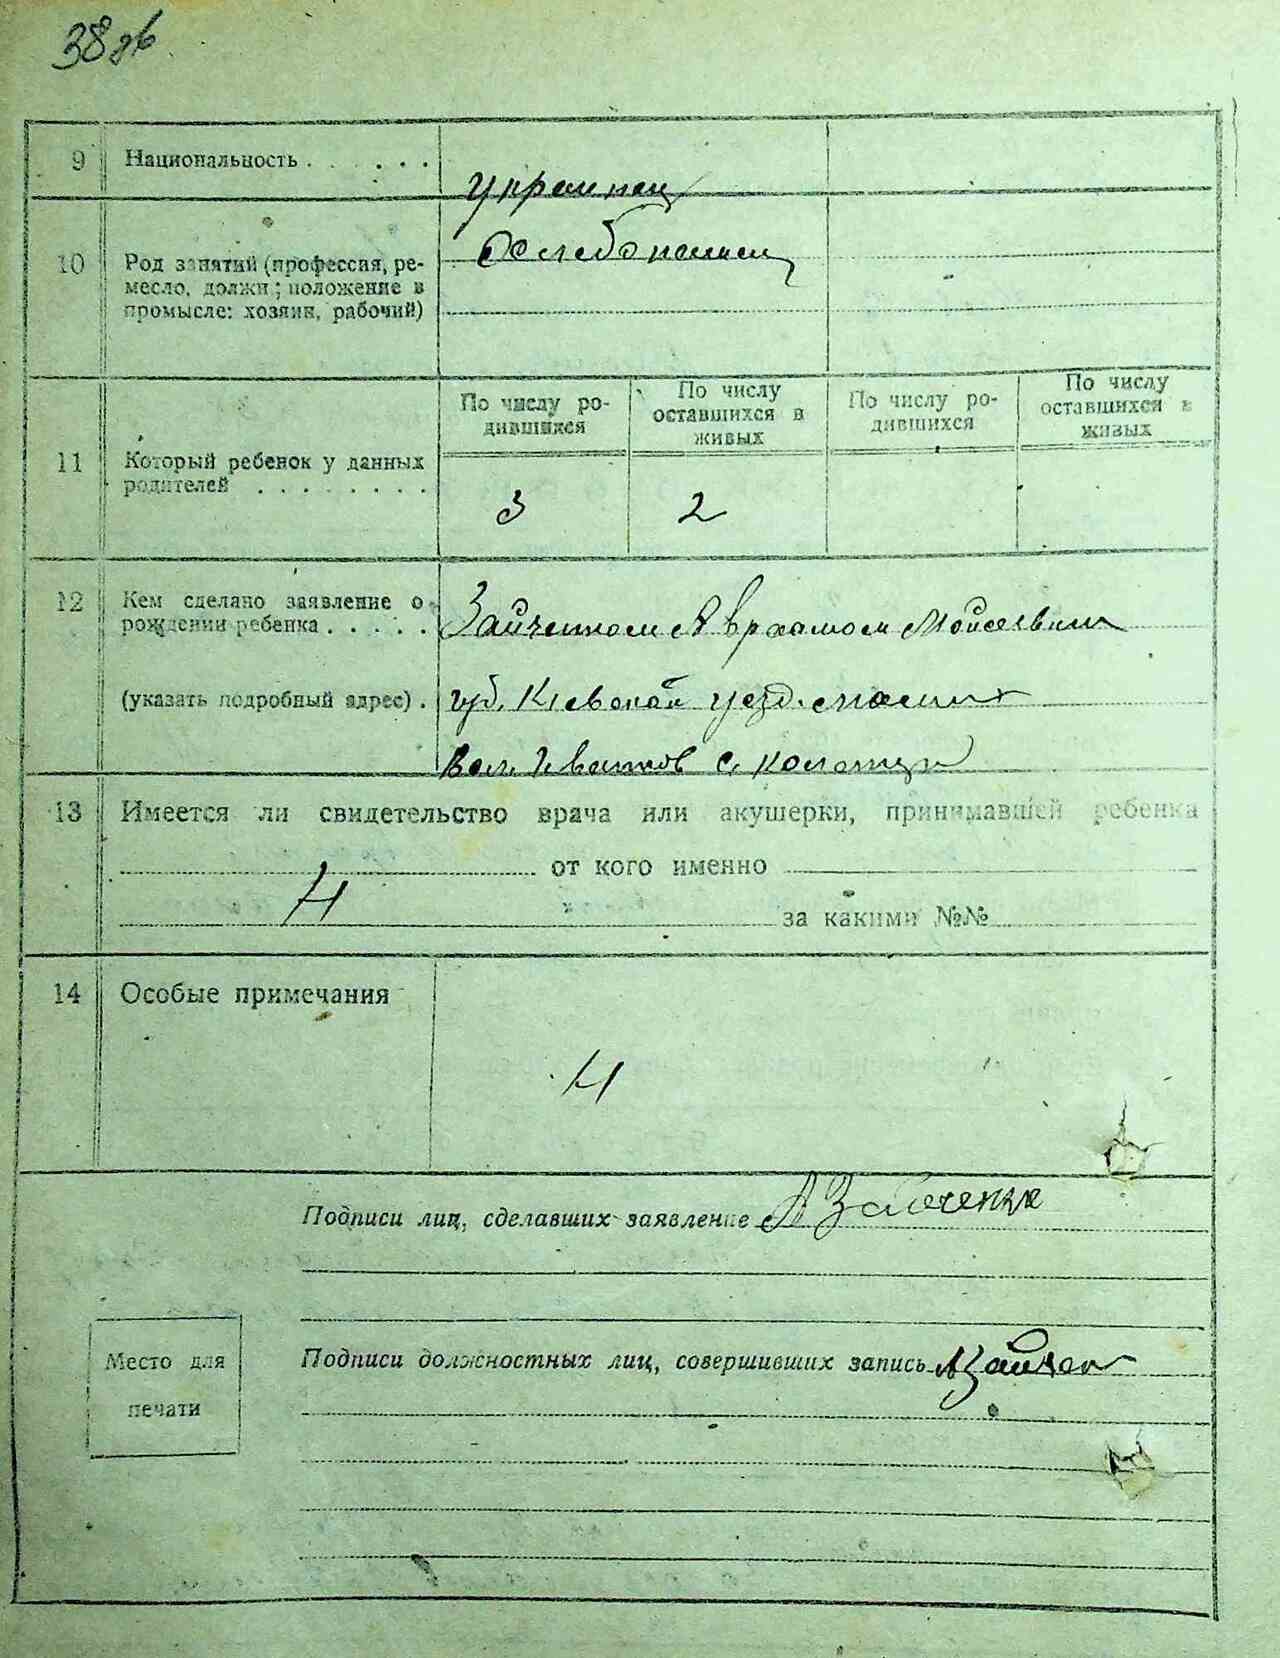 38 об
9 Национальность . . . . . .
Украинец
10 Род занятий (профессия, ре-
месло, должн; положение в
промысле: хозяин, рабочий)
Хлебопашец
11 Который ребенок у данных
родителей . . . . . . . .
По числу ро-
дившихся
По числу
оставшихся в
живых
По числу ро-
дившихся
По числу
оставшихся в
живых
3 2
12 Кем сделано заявление о
рождении ребенка . . . . .
(указать подробный адрес) .
Зайченком Аврхамом Мойсеевич
губ. Киевской уезд.
Вол. Иванков с.
13 Имеется ли свидетельство врача или акушерки, принимавшей ребенка
от кого именно
Н за какими №№
14 Особые примечания
Н
Подписи лиц, сделавших заявление А Зайченко
Место для
печати
Подписи должностных лиц, совершивших запись АЗайчен